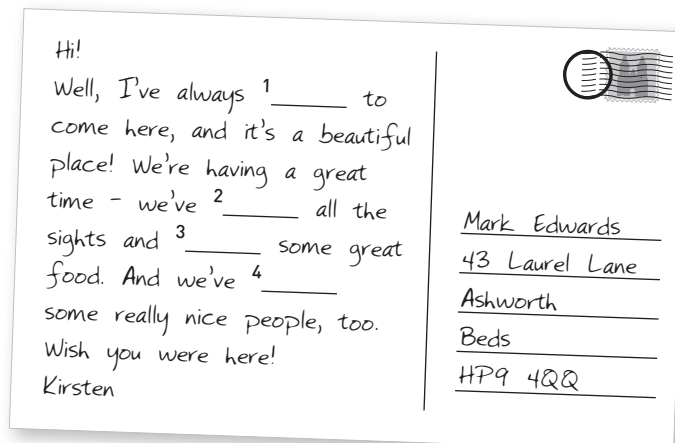 Hi!
Well, I've always 1_______ to
come here, and it's a beautiful
place! We're having a great
time – we've 2_______ all the
sights and 3_______ some great
food. And we've 4_______
some really nice people, too.
Wish you were here!
Kirsten
Mark Edwards
43 Laurel Lane
Ashworth
Beds
HP9 4QQ